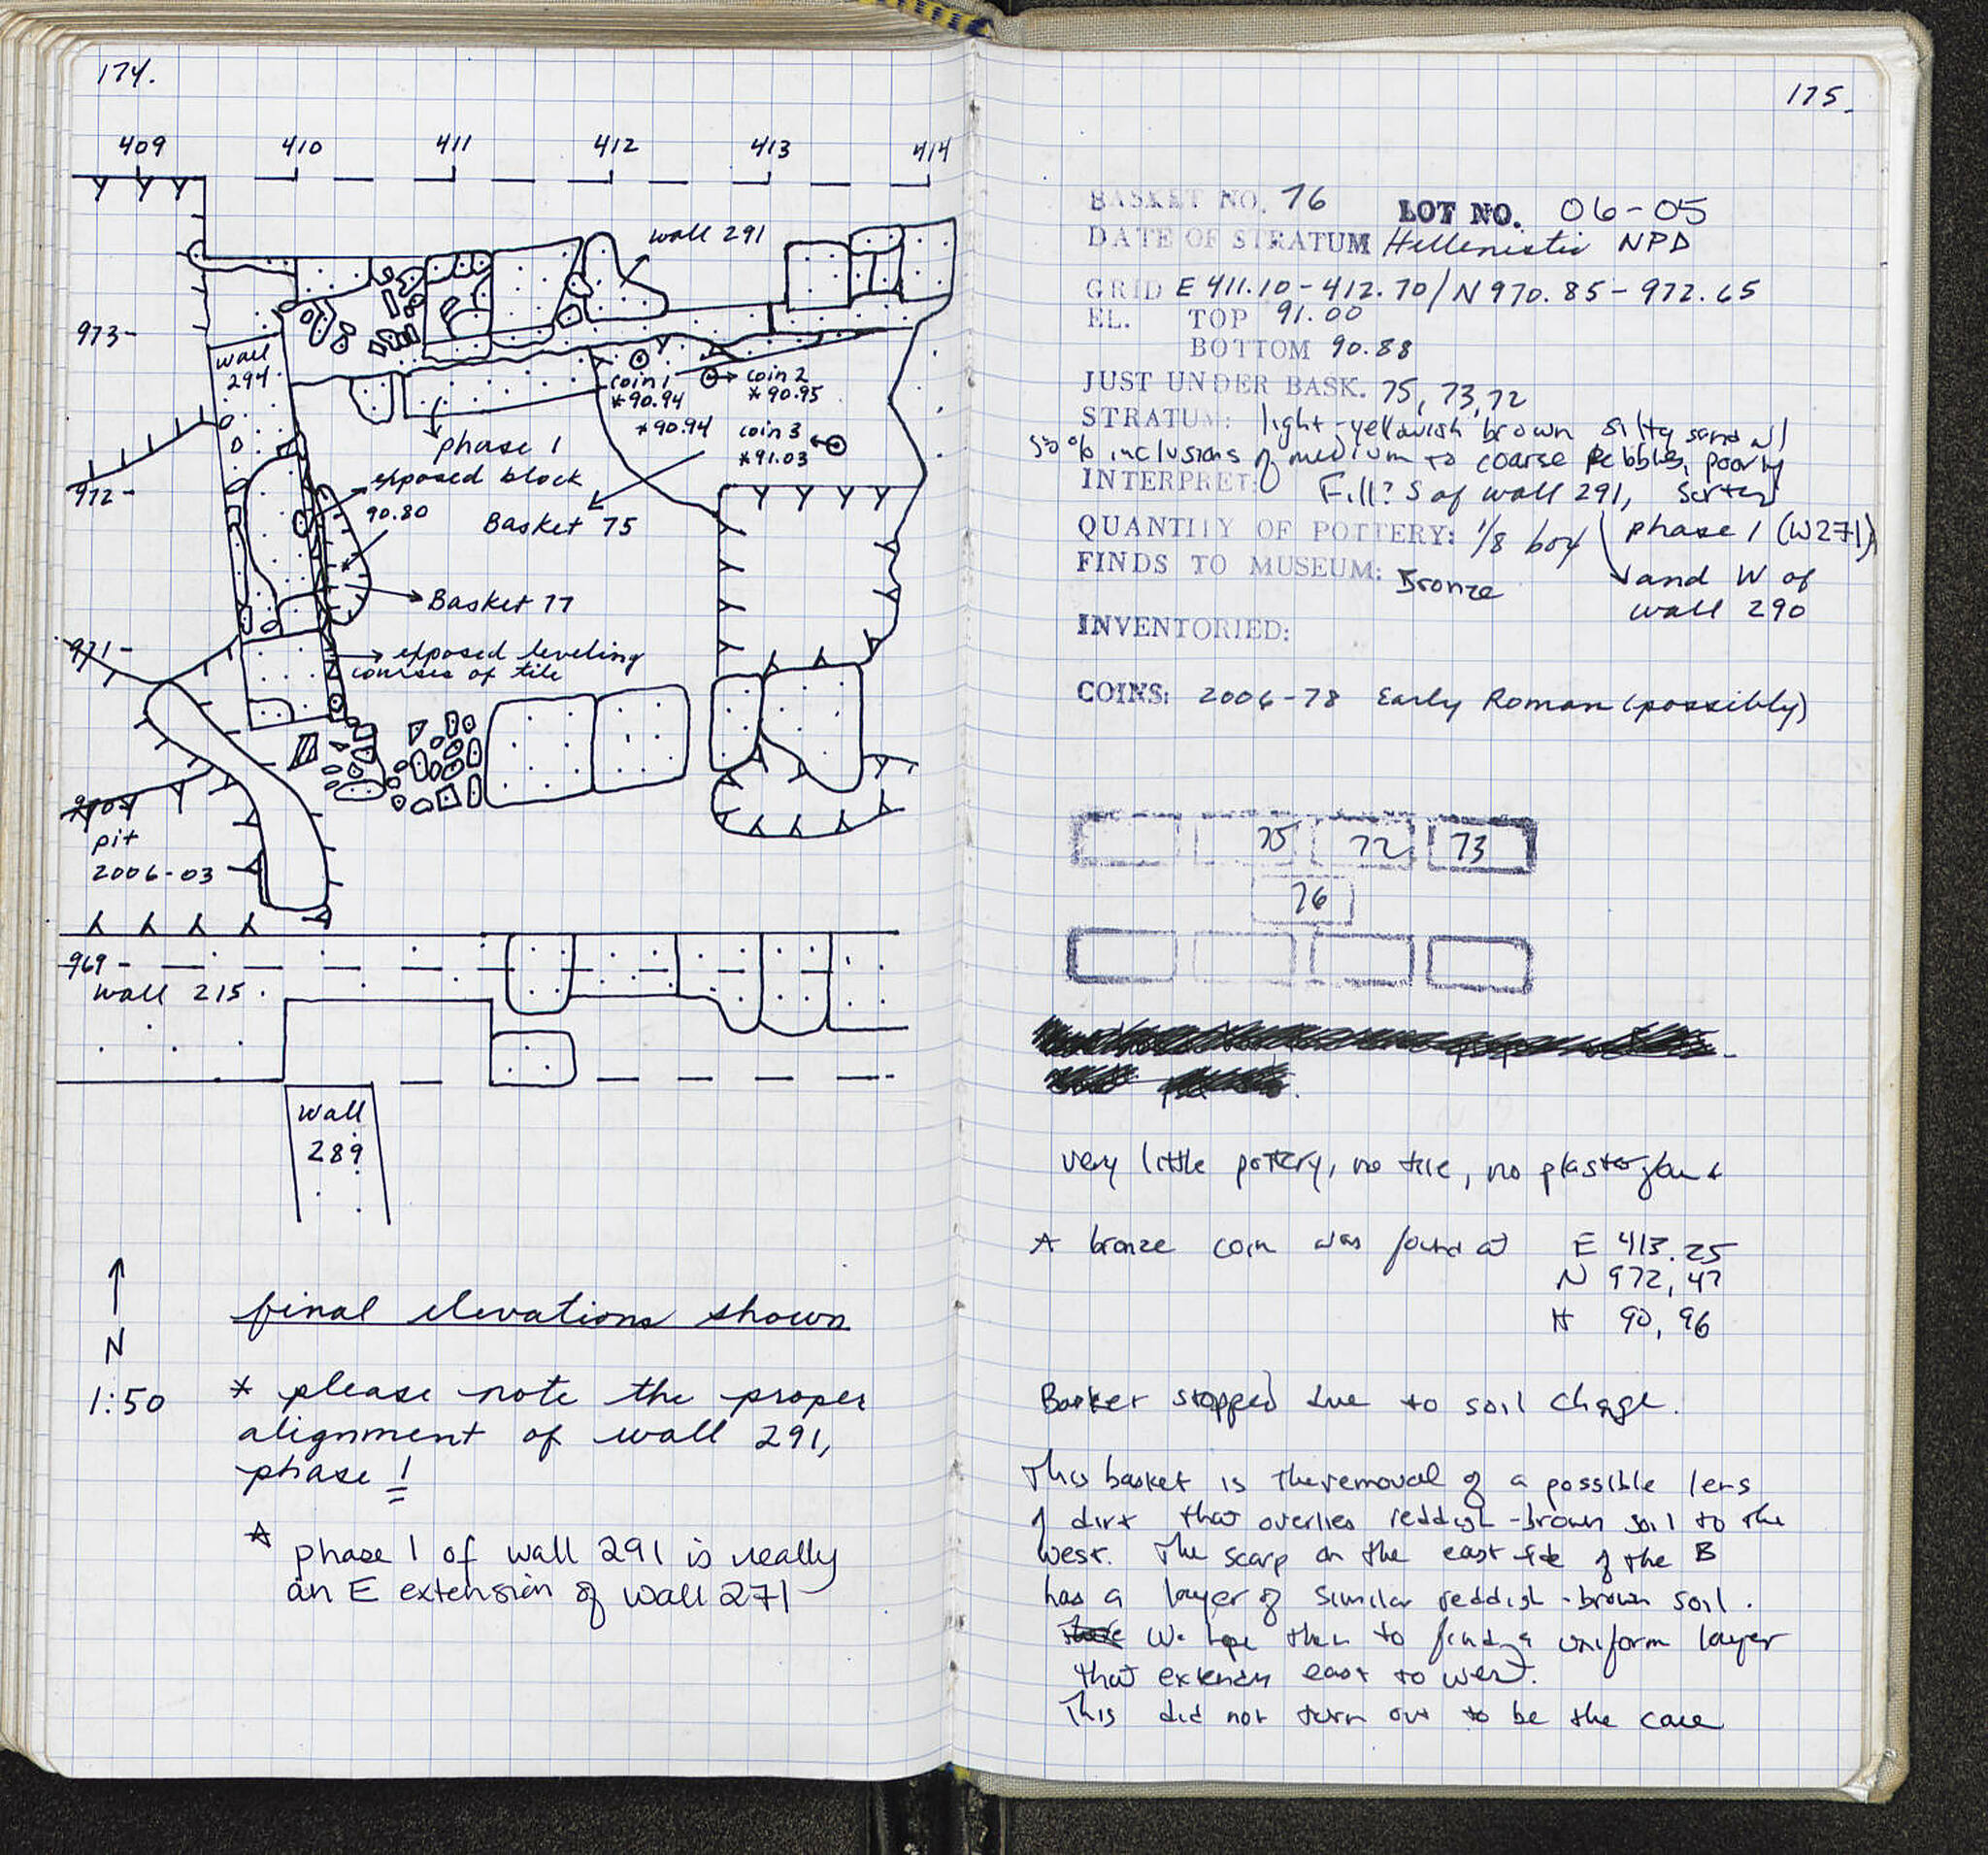 174.
409 410 411 412 413 414
wall 291
973-
wall
294.
coin 1
*90.94
coin 2
*90.95
*90.94
coin 3
*91.03
phase 1
exposed block
90.80
972-
Basket 75
Basket 77
971-
exposed leveling
courses of tile
pit
2006-03
969-
wall 215
wall
289
N
1:50
final elevations shown
* please note the proper
alignment of wall 291,
phase 1
* phase 1 of wall 291 is really
an E extension of wall 271
175.
BASKET NO. 76 LOT NO. 06-05
DATE OF STRATUM Hellenistic NPD
GRID E 411.10-412.70/N970.85-972.65
EL. TOP 91.00
BOTTOM 90.88
JUST UNDER BASK. 75, 73, 72
STRATUM: light-yellowish brown silty sand w/
50% inclusions of medium to coarse pebbles, poorly
sorted
INTERPRET: Fill? S of wall 291,
phase 1 (W271)
and W of
wall 290
QUANTITY OF POTTERY: 1/8 box
FINDS TO MUSEUM: Bronze
INVENTORIED:
COINS: 2006-78 Early Roman (possibly)
75 72 73
76
very little pottery, no tile, no plaster found
A bronze coin was found at E 413.25
N 972,47
H 90,96
Basket stopped due to soil chage.
This basket is the removal of a possible lens
of dirt that overlies reddish-brown soil to the
west. The scarp on the east side of the B
has a layer of similar reddish-brown soil.
We hope then to find a uniform layer
that extends east to west.
This did not turn out to be the case